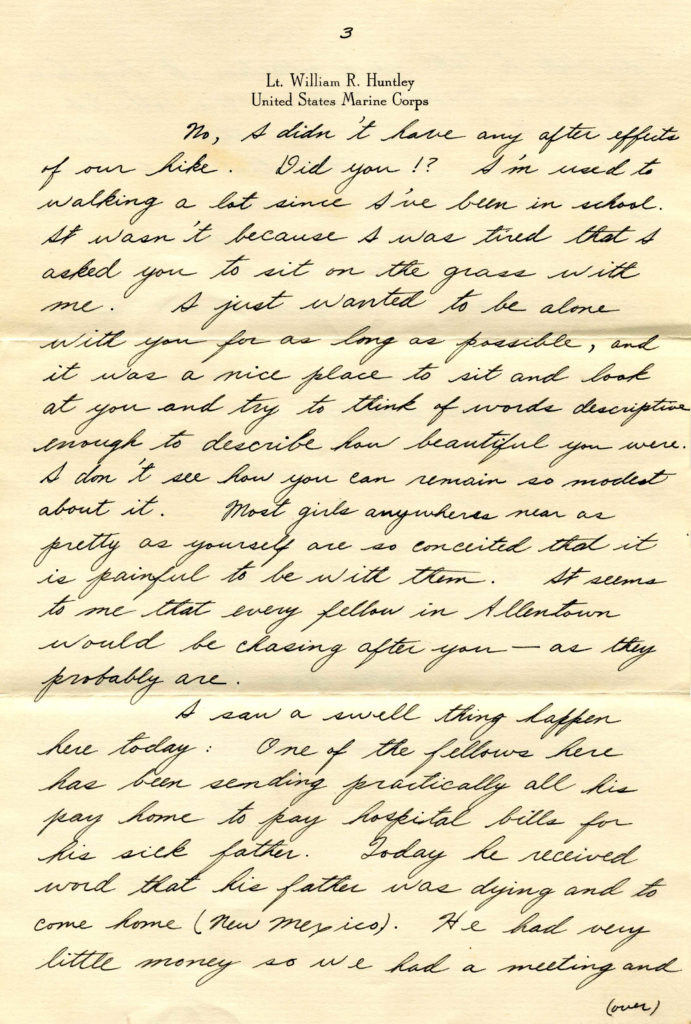 3
Lt. William R. Huntley
United States Marine Corps
No, I didn't have any after effects
of our hike. Did you!? I'm used to
walking a lot since I've been in school.
It wasn't because I was tired that I
asked you to sit on the grass with
me. I just wanted to be alone
with you for as long as possible, and
it was a nice place to sit and look
at you and try to think of words descriptive
enough to describe how beautiful you were.
I don't see how you can remain so modest
about it. Most girls anywheres near as
pretty as yourself are so conceited that it
is painful to be with them. It seems
to me that every fellow in Allentown
would be chasing after you — as they
probably are.
I saw a swell thing happen
here today: One of the fellows here
has been sending practically all his
pay home to pay hospital bills for
his sick father. Today he received
word that his father was dying and to
come home (New Mexico). He had very
little money so we had a meeting and
(over)